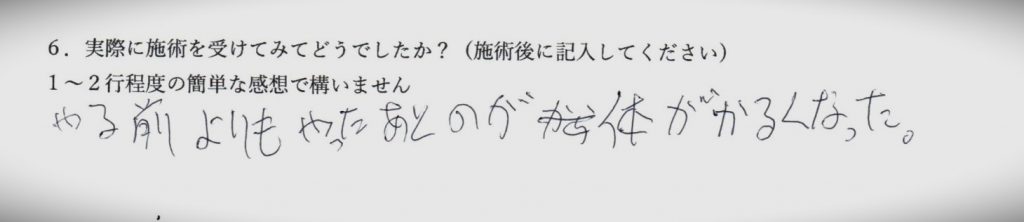 6．実際に施術を受けてみてどうでしたか？（施術後に記入してください）
1～2行程度の簡単な感想で構いません
やる前よりもやったあとのが体がかるくなった。